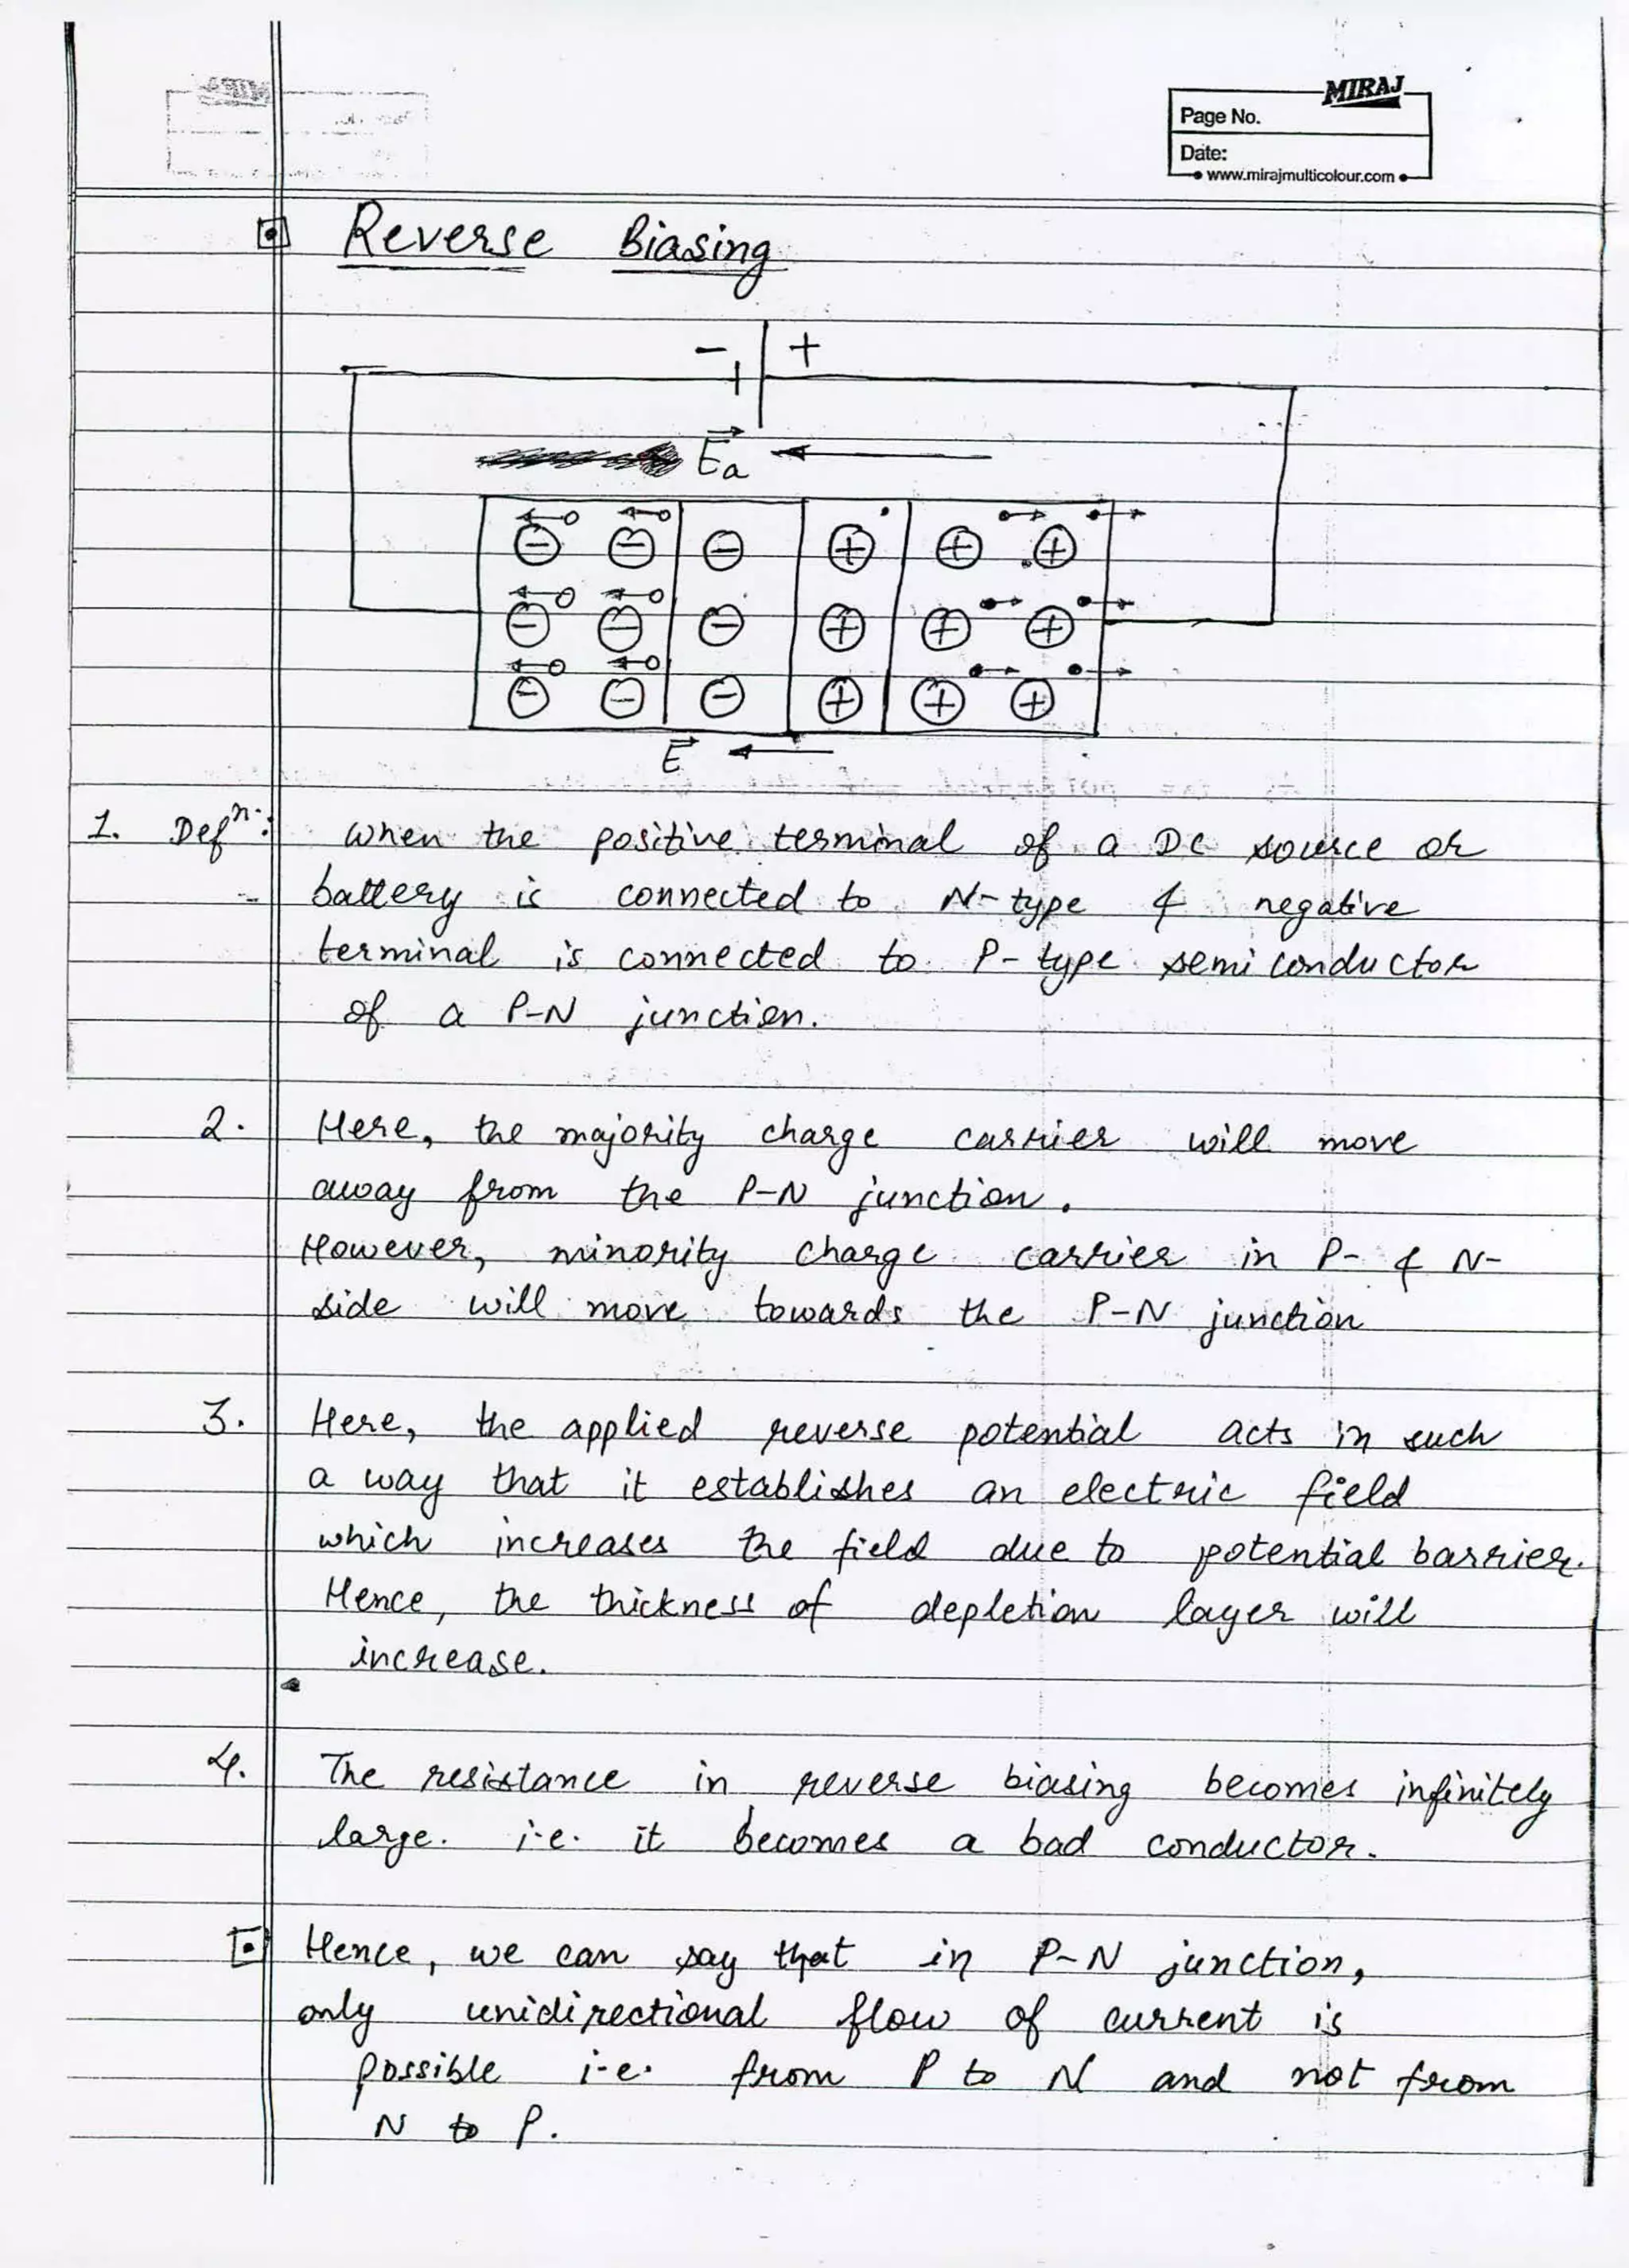 MIRAJ
Page No.
Date:
www.mirajmulticolour.com
Reverse Biasing
- +
E⃗a
⊖ ⊖ ⊖ ⊕ ⊕ ⊕
⊖ ⊖ ⊖ ⊕ ⊕ ⊕
⊖ ⊖ ⊖ ⊕ ⊕ ⊕
E⃗
1. Defⁿ: When the positive terminal of a DC source or
battery is connected to N-type & negative
terminal is connected to P-type semiconductor
of a P-N junction.
2. Here, the majority charge carrier will move
away from the P-N junction.
However, minority charge carrier in P- & N-
side will move towards the P-N junction
3. Here, the applied reverse potential acts in such
a way that it establishes an electric field
which increases the field due to potential barrier.
Hence, the thickness of depletion layer will
increase.
4. The resistance in reverse biasing becomes infinitely
large. i.e. it becomes a bad conductor.
Hence, we can say that in P-N junction,
only unidirectional flow of current is
possible i.e. from P to N and not from
N to P.